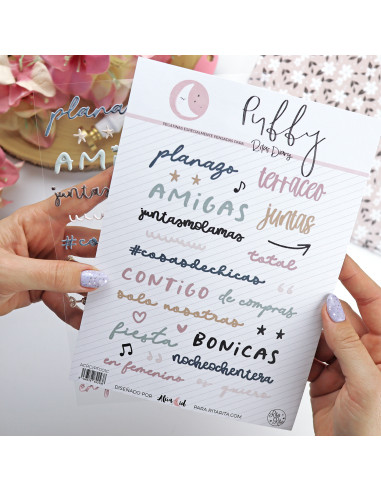 Puffy
Ritas Diary
planazo
terraceo
AMIGAS
juntas
juntasmolamas
total
#cosasdechicas
CONTIGO
de compras
solo nosotras
fiesta
BONICAS
nocheochentera
en femenino
os quiero
DISEÑADO POR
PARA RITARITA.COM
planazo
AMIG
juntas
#cos